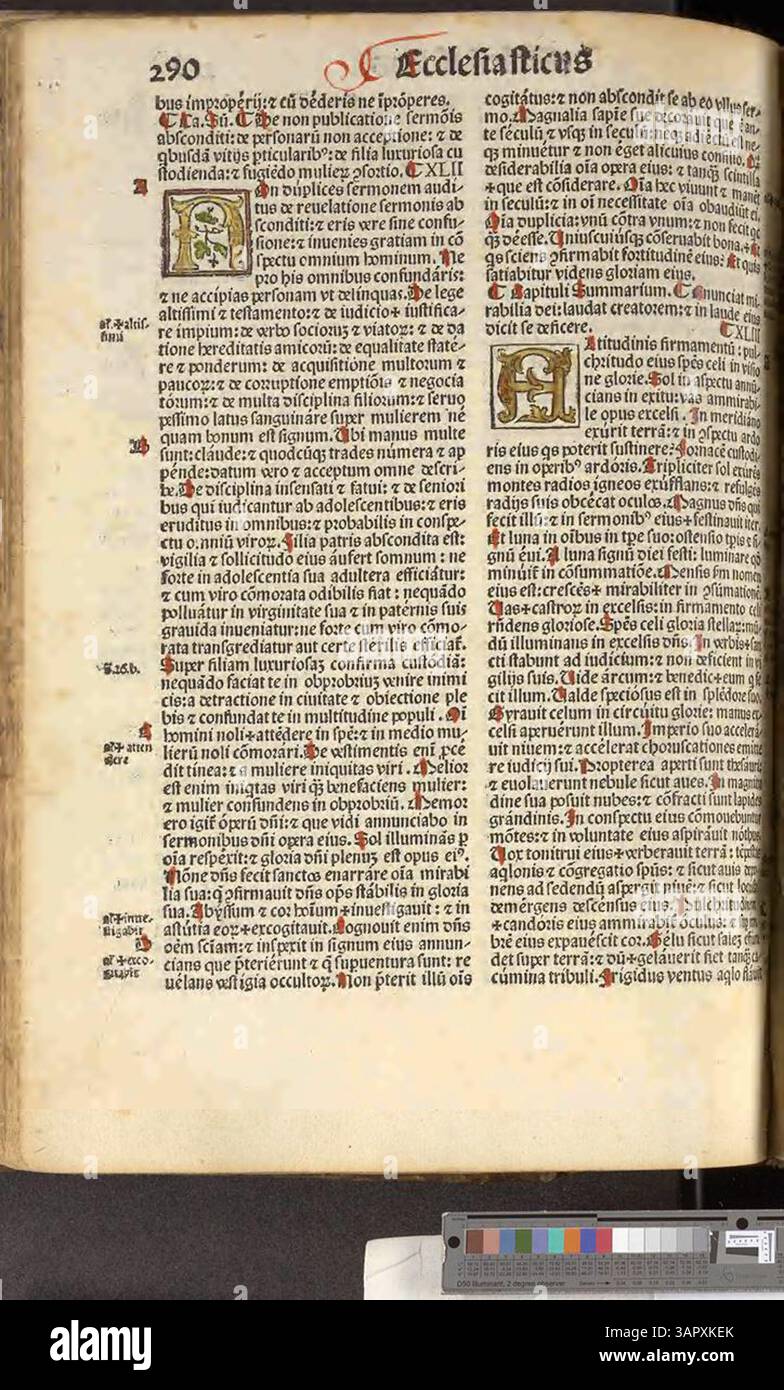 290
Ecclesiasticus
bus improperij: ⁊ cū dederis ne īproperes.
¶ Ca. Sū. ¶ De non publicatione sermōis
absconditi: de personarū non acceptione: ⁊ de
qbusdā vitijs pticularibꝰ: de filia luxuriosa cu
stodienda: ⁊ fugiēdo mulieꝝ ꝯsortio. ¶ XLII
A
Non duplices sermonem audi-
tus de reuelatione sermonis ab
sconditi: ⁊ eris vere sine confu-
sione: ⁊ inuenies gratiam in cō
spectu omnium hominum. Ne
pro his omnibus confundaris:
⁊ ne accipias personam vt delinquas. De lege
al'. ✢altis-
simi
altissimi ⁊ testamento: ⁊ de iudicio✢ iustifica-
re impium: de verbo socioruꝫ ⁊ viatoꝝ: ⁊ de da
tione hereditatis amicorū: de equalitate state-
re ⁊ ponderum: de acquisitione multorum ⁊
paucoꝝ: ⁊ de corruptione emptiōis ⁊ negocia
torum: ⁊ de multa disciplina filiorum: ⁊ seruo
pessimo latus sanguinare super mulierem ne
quam bonum est signum. Ubi manus multe
B
sunt: claude: ⁊ quodcūqꝫ trades numera ⁊ ap
pende: datum vero ⁊ acceptum omne descri-
be. De disciplina insensati ⁊ fatui: ⁊ de seniori
bus qui iudicantur ab adolescentibus: ⁊ eris
eruditus in omnibus: ⁊ probabilis in conspe-
ctu omniū viroꝝ. Filia patris abscondita est:
vigilia ⁊ sollicitudo eius aufert somnum: ne
forte in adolescentia sua adultera efficiatur:
⁊ cum viro cōmorata odibilis fiat: nequādo
polluatur in virginitate sua ⁊ in paternis suis
grauida inueniatur: ne forte cum viro cōmo-
rata transgrediatur aut certe sterilis efficiat̄.
S.26.b.
Super filiam luxuriosaꝫ confirma custodiā:
nequādo faciat te in obprobriuꝫ venire inimi
cis: a detractione in ciuitate ⁊ obiectione ple
bis ⁊ confundat te in multitudine populi. Oī
al'✢ atten
dere
homini noli✢attēdere in spē: ⁊ in medio mu-
lierū noli cōmorari. De vestimentis enī ꝓcē
dit tinea: ⁊ a muliere iniquitas viri. Melior
est enim iniqtas viri q̄ꝫ benefaciens mulier:
⁊ mulier confundens in obprobriū. Memor
ero igit̄ operū dñi: ⁊ que vidi annunciabo in
sermonibus dñi opera eius. Sol illuminās ꝑ
oīa respexit: ⁊ gloria dñi plenuꝫ est opus eiꝰ.
Nōne dñs fecit sanctos enarrare oīa mirabi
lia sua: q̄ ꝯfirmauit dñs oꝑs stabilis in gloria
al'✢inue-
stigabit
sua. Abyssum ⁊ cor hoīum✢inuestigauit: ⁊ in
D
astutia eoꝝ✢excogitauit. Cognouit enim dñs
al' ✢exco-
gitauit
oēm sciam: ⁊ inspexit in signum eius annun-
cians que p̄terierunt ⁊ q̄ supuentura sunt: re
uelans vestigia occultoꝝ. Non p̄terit illū oīs
cogitatus: ⁊ non abscondit se ab eo vllus ser-
mo. Magnalia sapiē sue decorauit
te seculū ⁊ vsqꝫ in seculū: neqꝫ adiectū est ne-
qꝫ minuetur ⁊ non eget alicuius consilio.
desiderabilia oīa opera eius: ⁊ tanqꝫ scintilla
✢que est cōsiderare. Oīa hec viuunt ⁊ manēt
in seculū: ⁊ in oī necessitate oīa obaudiūt ei.
Oīa duplicia: vnū cōtra vnum: ⁊ non fecit qc
q̄ꝫ deesse. Uniuscuiusqꝫ cōseruabit bona.✢ Et
qs sciens ꝯfirmabit fortitudinē eius: Et quis
satiabitur videns gloriam eius.
¶ Capituli Summarium. ¶ Enunciat mi-
rabilia dei: laudat creatorem: ⁊ in laude eius
dicit se deficere. ¶ XLIII
Altitudinis firmamentū: pul-
chritudo eius spēs celi in visio
ne glorie. Sol in aspectu annū
cians in exitu: vas ammirabi-
le opus excelsi. In meridiano
exurit terrā: ⁊ in ꝯspectu ardo
ris eius qs poterit sustinere? Fornacē custodi-
ens in operibꝰ ardoris. Tripliciter sol exurēs
montes radios igneos exufflans: ⁊ refulgēs
radijs suis obcecat oculos. Magnus dñs qui
fecit illū: ⁊ in sermonibꝰ eius✢ festinauit iter.
Et luna in oībus in tpe suo: ostensio tpis ⁊ si-
gnū eui. A luna signū diei festi: luminare qd̄
minuit̄ in cōsummatiōe. Mensis s̄m nomen
eius est: crescēs✢ mirabiliter in ꝯsūmationē.
Uas✢castroꝝ in excelsis: in firmamento celi
rn̄dens gloriose. Spēs celi gloria stellaꝝ: mū
dū illuminans in excelsis dñs. In verbis✢san
cti stabunt ad iudicium: ⁊ non deficient in vi
gilijs suis. Uide arcum: ⁊ benedic✢eum q̄ fe
cit illum. Ualde speciosus est in splēdore suo.
Gyrauit celum in circuitu glorie: manus ex-
celsi aperuerunt illum. Imperio suo accelera
uit niuem: ⁊ accelerat choruscationes emitte
re iudicij sui. Propterea aperti sunt thesauri:
⁊ euolauerunt nebule sicut aues. In magnitu
dine sua posuit nubes: ⁊ cōfracti sunt lapides
grandinis. In conspectu eius cōmouebuntur
mōtes: ⁊ in voluntate eius aspirauit nothus
Uox tonitrui eius✢verberauit terrā: tēpestas
aqlonis ⁊ cōgregatio spūs: ⁊ sicut auis depo-
nens ad sedendū aspergit niuē: ⁊ sicut locusta
demergens descensus eius. Pulchritudinem
✢candoris eius ammirabit̄ oculus: ⁊ sup im
brē eius expauescit cor. Gelu sicut saleꝫ effun
det super terrā: ⁊ dū✢gelauerit fiet tanqꝫ ca
cumina tribuli. Frigidus ventus aqlo flauit
D50 Illuminant, 2 degree observer
alamy
Image ID: 3APXKEK
www.alamy.com